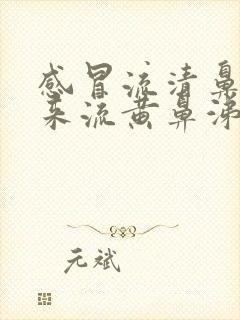 感冒流清鼻
来流黄鼻涕
元斌